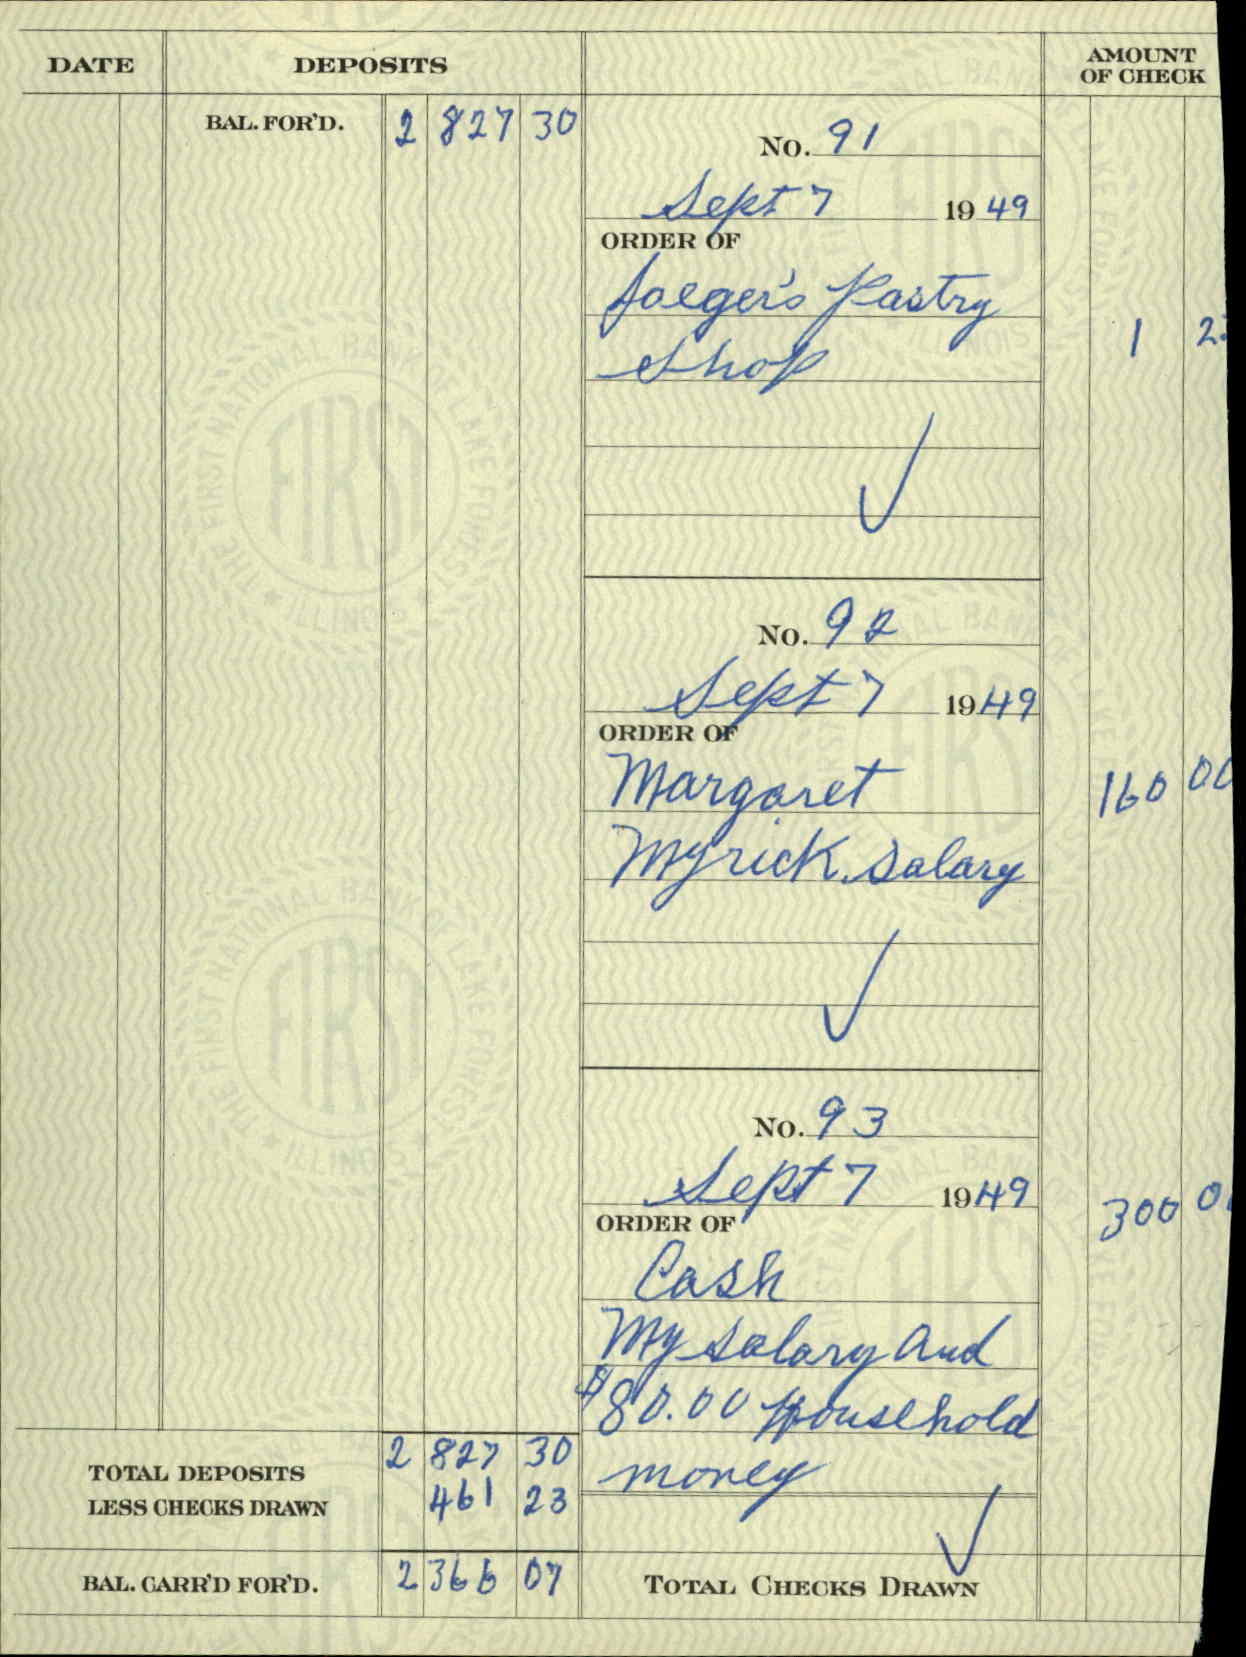 DATE DEPOSITS AMOUNT OF CHECK
BAL. FOR'D. 2 827 30
No. 91
Sept 7 19 49
ORDER OF
Jaeger's Pastry
Shop
1
No. 92
Sept 7 19 49
ORDER OF
Margaret
Myrick Salary
160 00
No. 93
Sept 7 19 49
ORDER OF
300
Cash
My Salary and
$80.00 Household
money
TOTAL DEPOSITS 2 827 30
LESS CHECKS DRAWN 461 23
BAL. CARR'D FOR'D. 2 366 07
TOTAL CHECKS DRAWN
THE FIRST NATIONAL BANK LAKE FOREST
FIRST
ILLINOIS
THE FIRST NATIONAL BANK LAKE FOREST
FIRST
ILLINOIS